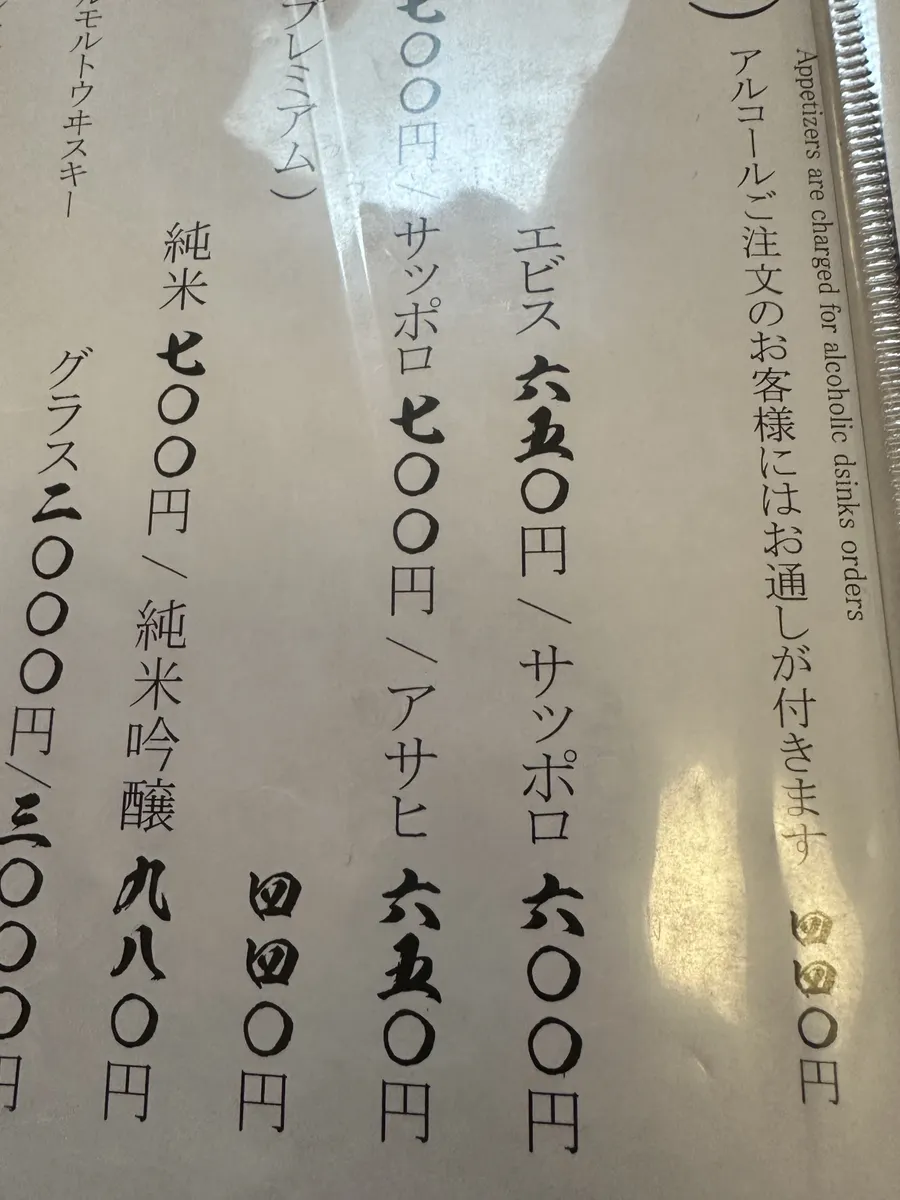 Appetizers are charged for alcoholic dsinks orders
アルコールご注文のお客様にはお通しが付きます 四四〇円
エビス 六五〇円/サッポロ 六〇〇円
七〇〇円/サッポロ 七〇〇円/アサヒ 六五〇円
プレミアム) 四四〇円
純米 七〇〇円/純米吟醸 九八〇円
ルモルトウヰスキー グラス 二〇〇〇円/三〇〇〇円